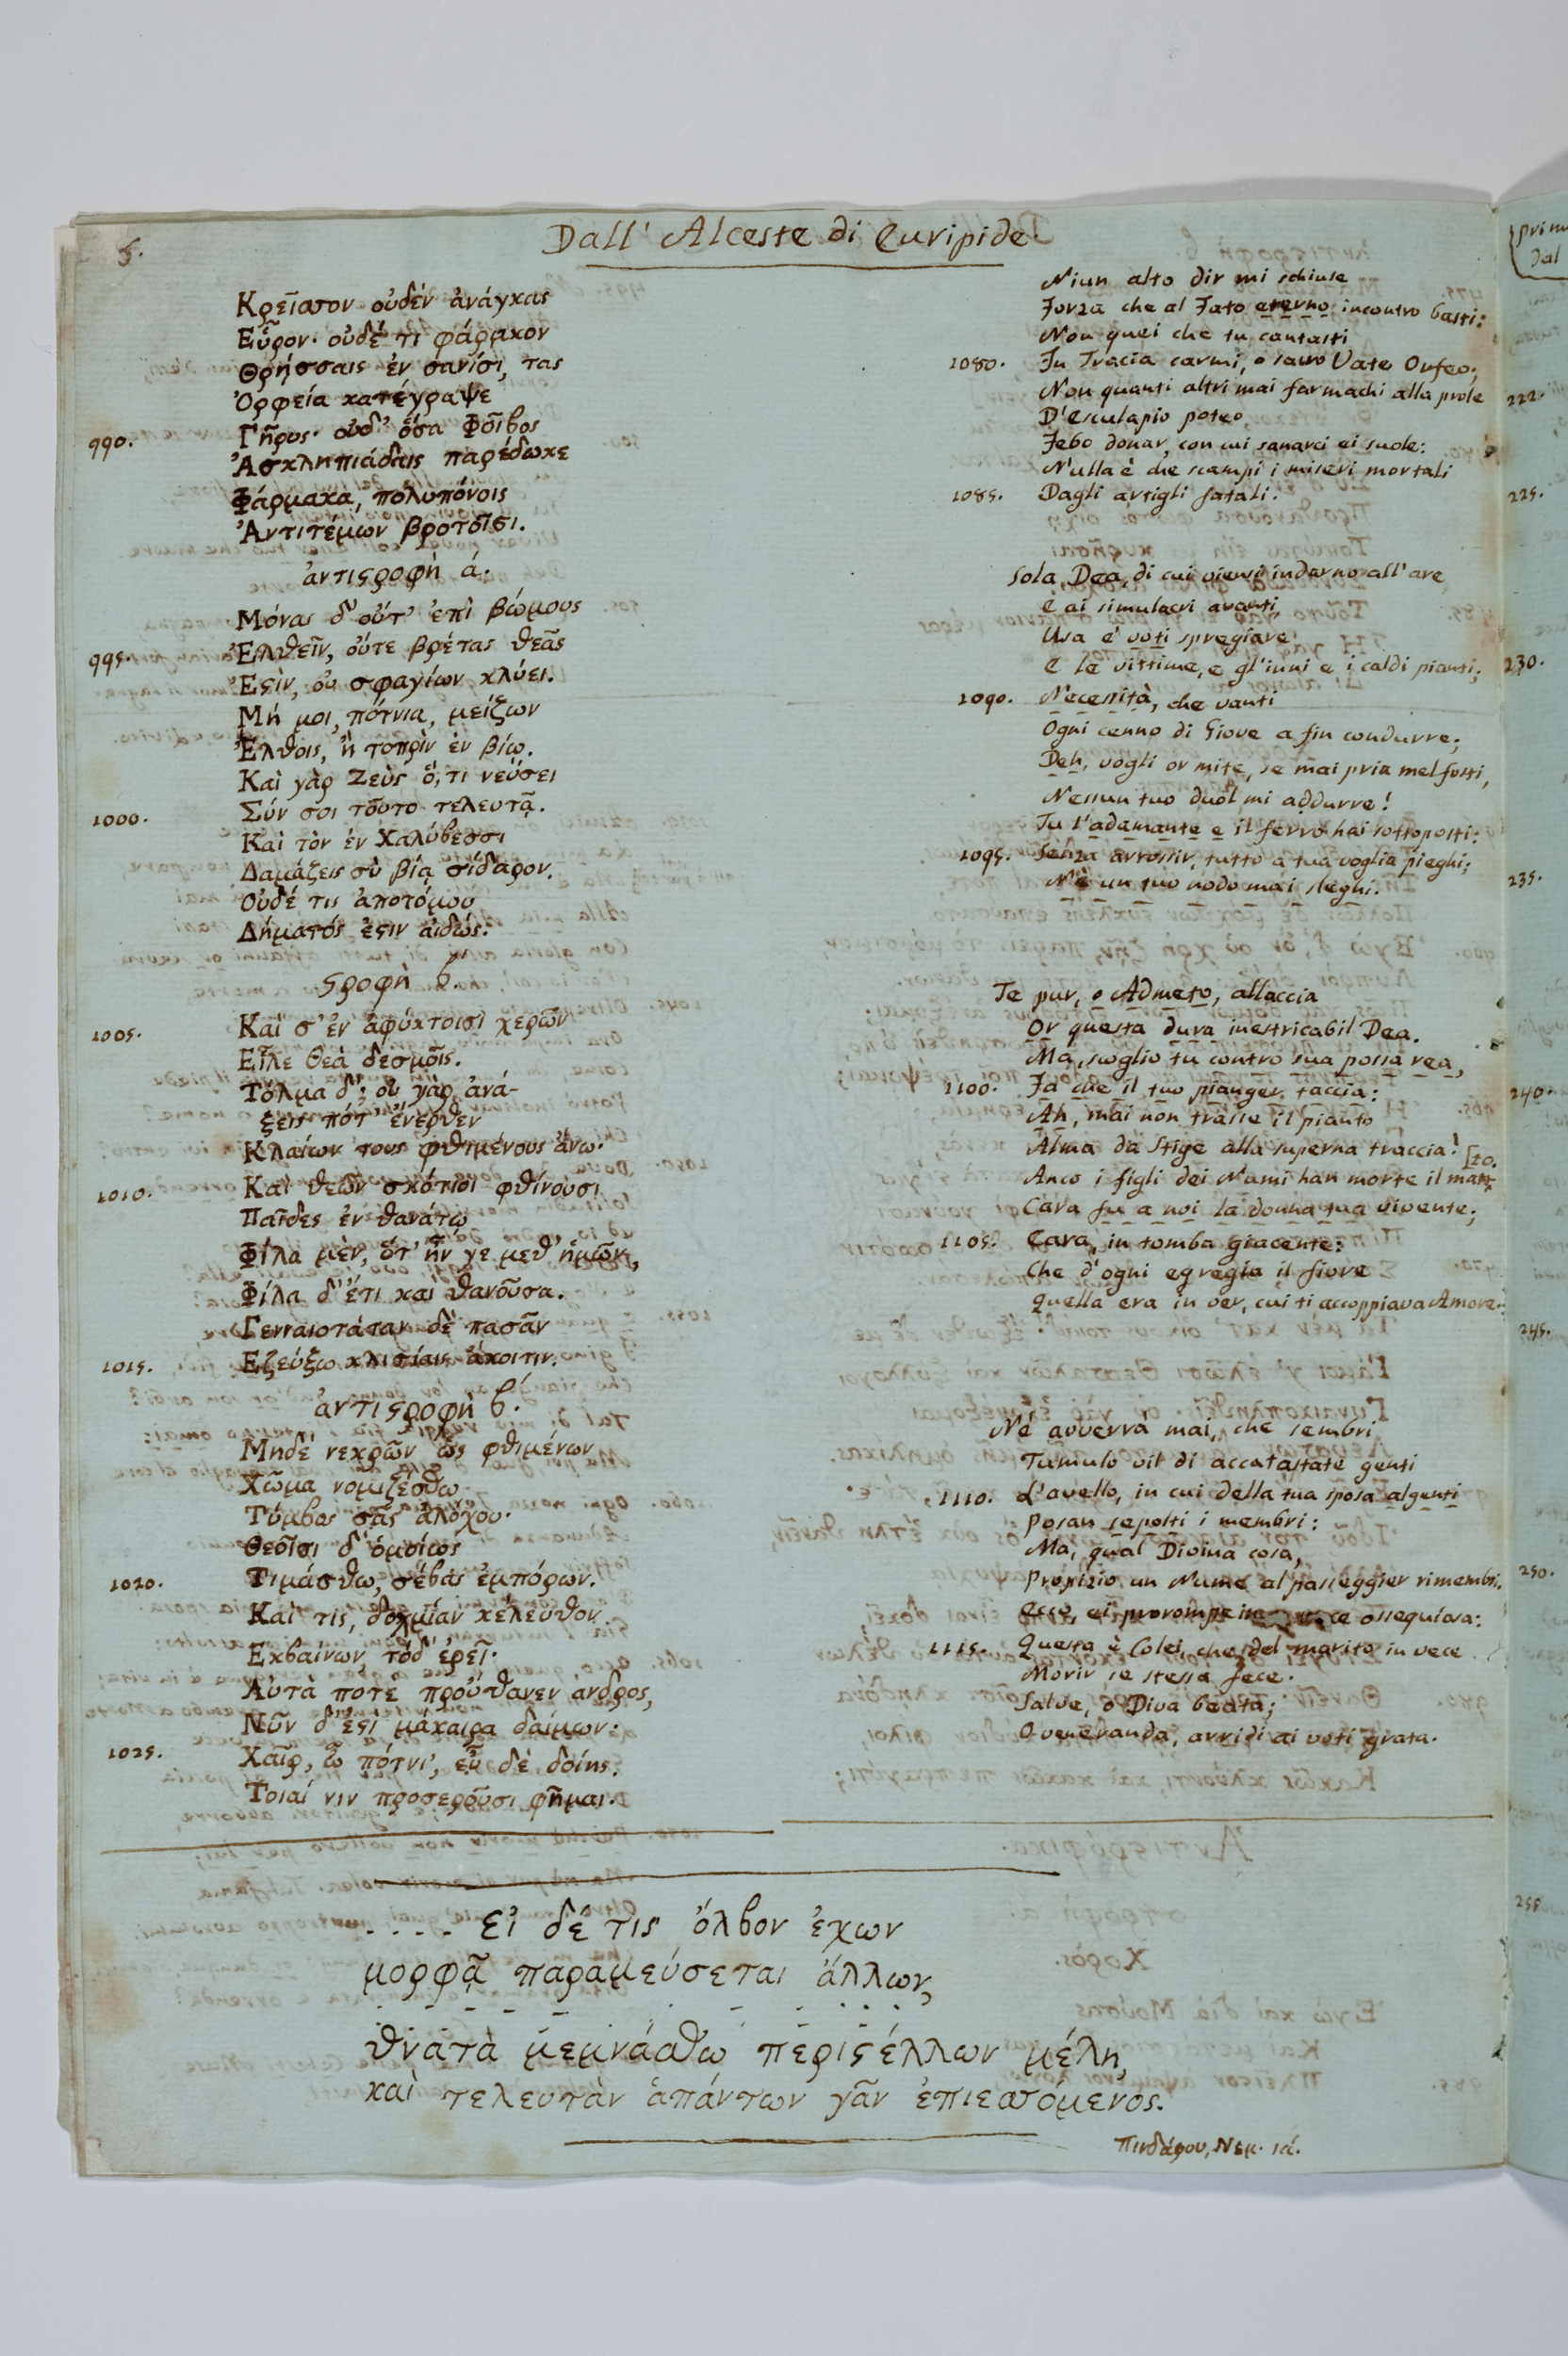 5.
Dall' Alceste di Euripide.
Κρεῖσσον οὐδὲν ἀνάγκας
Εὗρον· οὐδέ τι φάρμακον
Θρήσσαις ἐν σανίσι, τας
Ὀρφεία κατέγραψε
990. Γῆρυς· οὐδ' ὅσα Φοῖβος
Ἀσκληπιάδαις παρέδωκε
Φάρμακα, πολυπόνοις
Ἀντιτέμων βροτοῖσι.
ἀντιϛροφὴ ά.
Μόνας δ' οὔτ' ἐπὶ βώμους
995. Ἐλθεῖν, οὔτε βρέτας θεᾶς
Ἔϛιν, οὐ σφαγίων κλύει.
Μή μοι, πότνια, μείζων
Ἔλθοις, ἢ τοπρὶν ἐν βίω.
Καὶ γὰρ Ζεὺς ὅ,τι νεύσει
1000. Σύν σοι τοῦτο τελευτᾷ.
Καὶ τὸν ἐν Χαλύβεσσι
Δαμάζεις σὺ βίᾳ σίδαρον.
Οὐδέ τις ἀποτόμου
Λήματός ἐϛιν αἰδώς.
ϛροφὴ β'.
1005. Καὶ σ' ἐν ἀφύκτοισι χερῶν
Εἷλε θεὰ δεσμοῖς.
Τόλμα δ'; οὐ γὰρ ἀνά-
ξεις πότ' ἔνερθεν
Κλαίων τους φθιμένους ἄνω·
1010. Καὶ θεῶν σκότιοι φθίνουσι
Παῖδες ἐν θανάτῳ
Φίλα μὲν, ὅτ' ἦν γε μεθ' ἡμῶν,
Φίλα δ' ἔτι καὶ θανοῦσα.
Γενναιοτάταν δὲ πασᾶν
1015. Εζεύξω κλισίαις ἄκοιτιν.
ἀντιϛροφὴ β'.
Μηδὲ νεκρῶν ὡς φθιμένων
Χῶμα νομιζέσθω
Τύμβος σᾶς ἀλόχου·
Θεοῖσι δ' ὁμοίως
1020. Τιμάσθω, σέβας ἐμπόρων.
Καὶ τις, δοχμίαν κέλευθον
Εκβαίνων τόδ' ἐρεῖ·
Αὑτὰ ποτε προὔθανεν ανδρος,
Νῦν δ' ἔϛι μάκαιρα δαίμων·
1025. Χαῖρ, ὦ πότνι', εὖ δὲ δοίης.
Τοιαί νιν προσεροῦσι φῆμαι.
Niun alto dir mi schiuse
Forza che al Fato eterno incontro basti:
Non quei che tu cantasti
1080. In Tracia carmi, o sacro Vate Orfeo;
Non quanti altri mai farmachi alla prole
D'Esculapio poteo
Febo donar, con cui sanarci ei suole:
Nulla è che scampi i miseri mortali
1085. Dagli artigli fatali.
Sola Dea, di cui viensi indarno all'are
E ai simulacri avanti,
Usa e' voti spregiare
E le vittime, e gl'inni e i caldi pianti;
1090. Necessità, che vanti
Ogni cenno di Giove a fin condurre;
Deh, vogli or mite, se mai pria mel fosti,
Nessun tuo duol mi addurre!
Tu l'adamante e il ferro hai sottoposti:
1095. Senza arrossir, tutto a tua voglia pieghi;
Nè un tuo nodo mai sleghi.
Te pur, o Admeto, allaccia
Or questa dura inestricabil Dea.
Ma, scoglio tu contro sua possa rea,
1100. Fa che il tuo pianger taccia:
Ah, mai non trasse il pianto
Alma da Stige alla superna traccia!
Anco i figli dei Numi han morte il man[to.
Cara fu a noi la donna tua vivente;
1105. Cara, in tomba giacente:
Che d'ogni egregia il fiore
Quella era in ver, cui ti accoppiava Amore.
Nè avverrà mai, che sembri
Tumulo vil di accatastate genti
1110. L'avello, in cui della tua sposa algenti
Posan sepolti i membri:
Ma, qual Divina cosa,
Propizio un Nume al passeggier rimembri.
ei prorompe in ossequiosa:
1115. Questa è Colei, che del marito in vece
Morir se stessa fece.
Salve, o Diva beata;
O veneranda, arridi ai voti grata.
.... εἰ δέ τις ὄλβον ἔχων
μορφᾷ παραμεύσεται ἄλλων,
θνατὰ μεμνάσθω περιϛέλλων μέλη,
καὶ τελευτὰν ἁπάντων γᾶν ἐπιεσσόμενος.
Πινδάρου, Νεμ. ιά.
prim
dal
222.
225.
230.
235.
240.
245.
250.
255